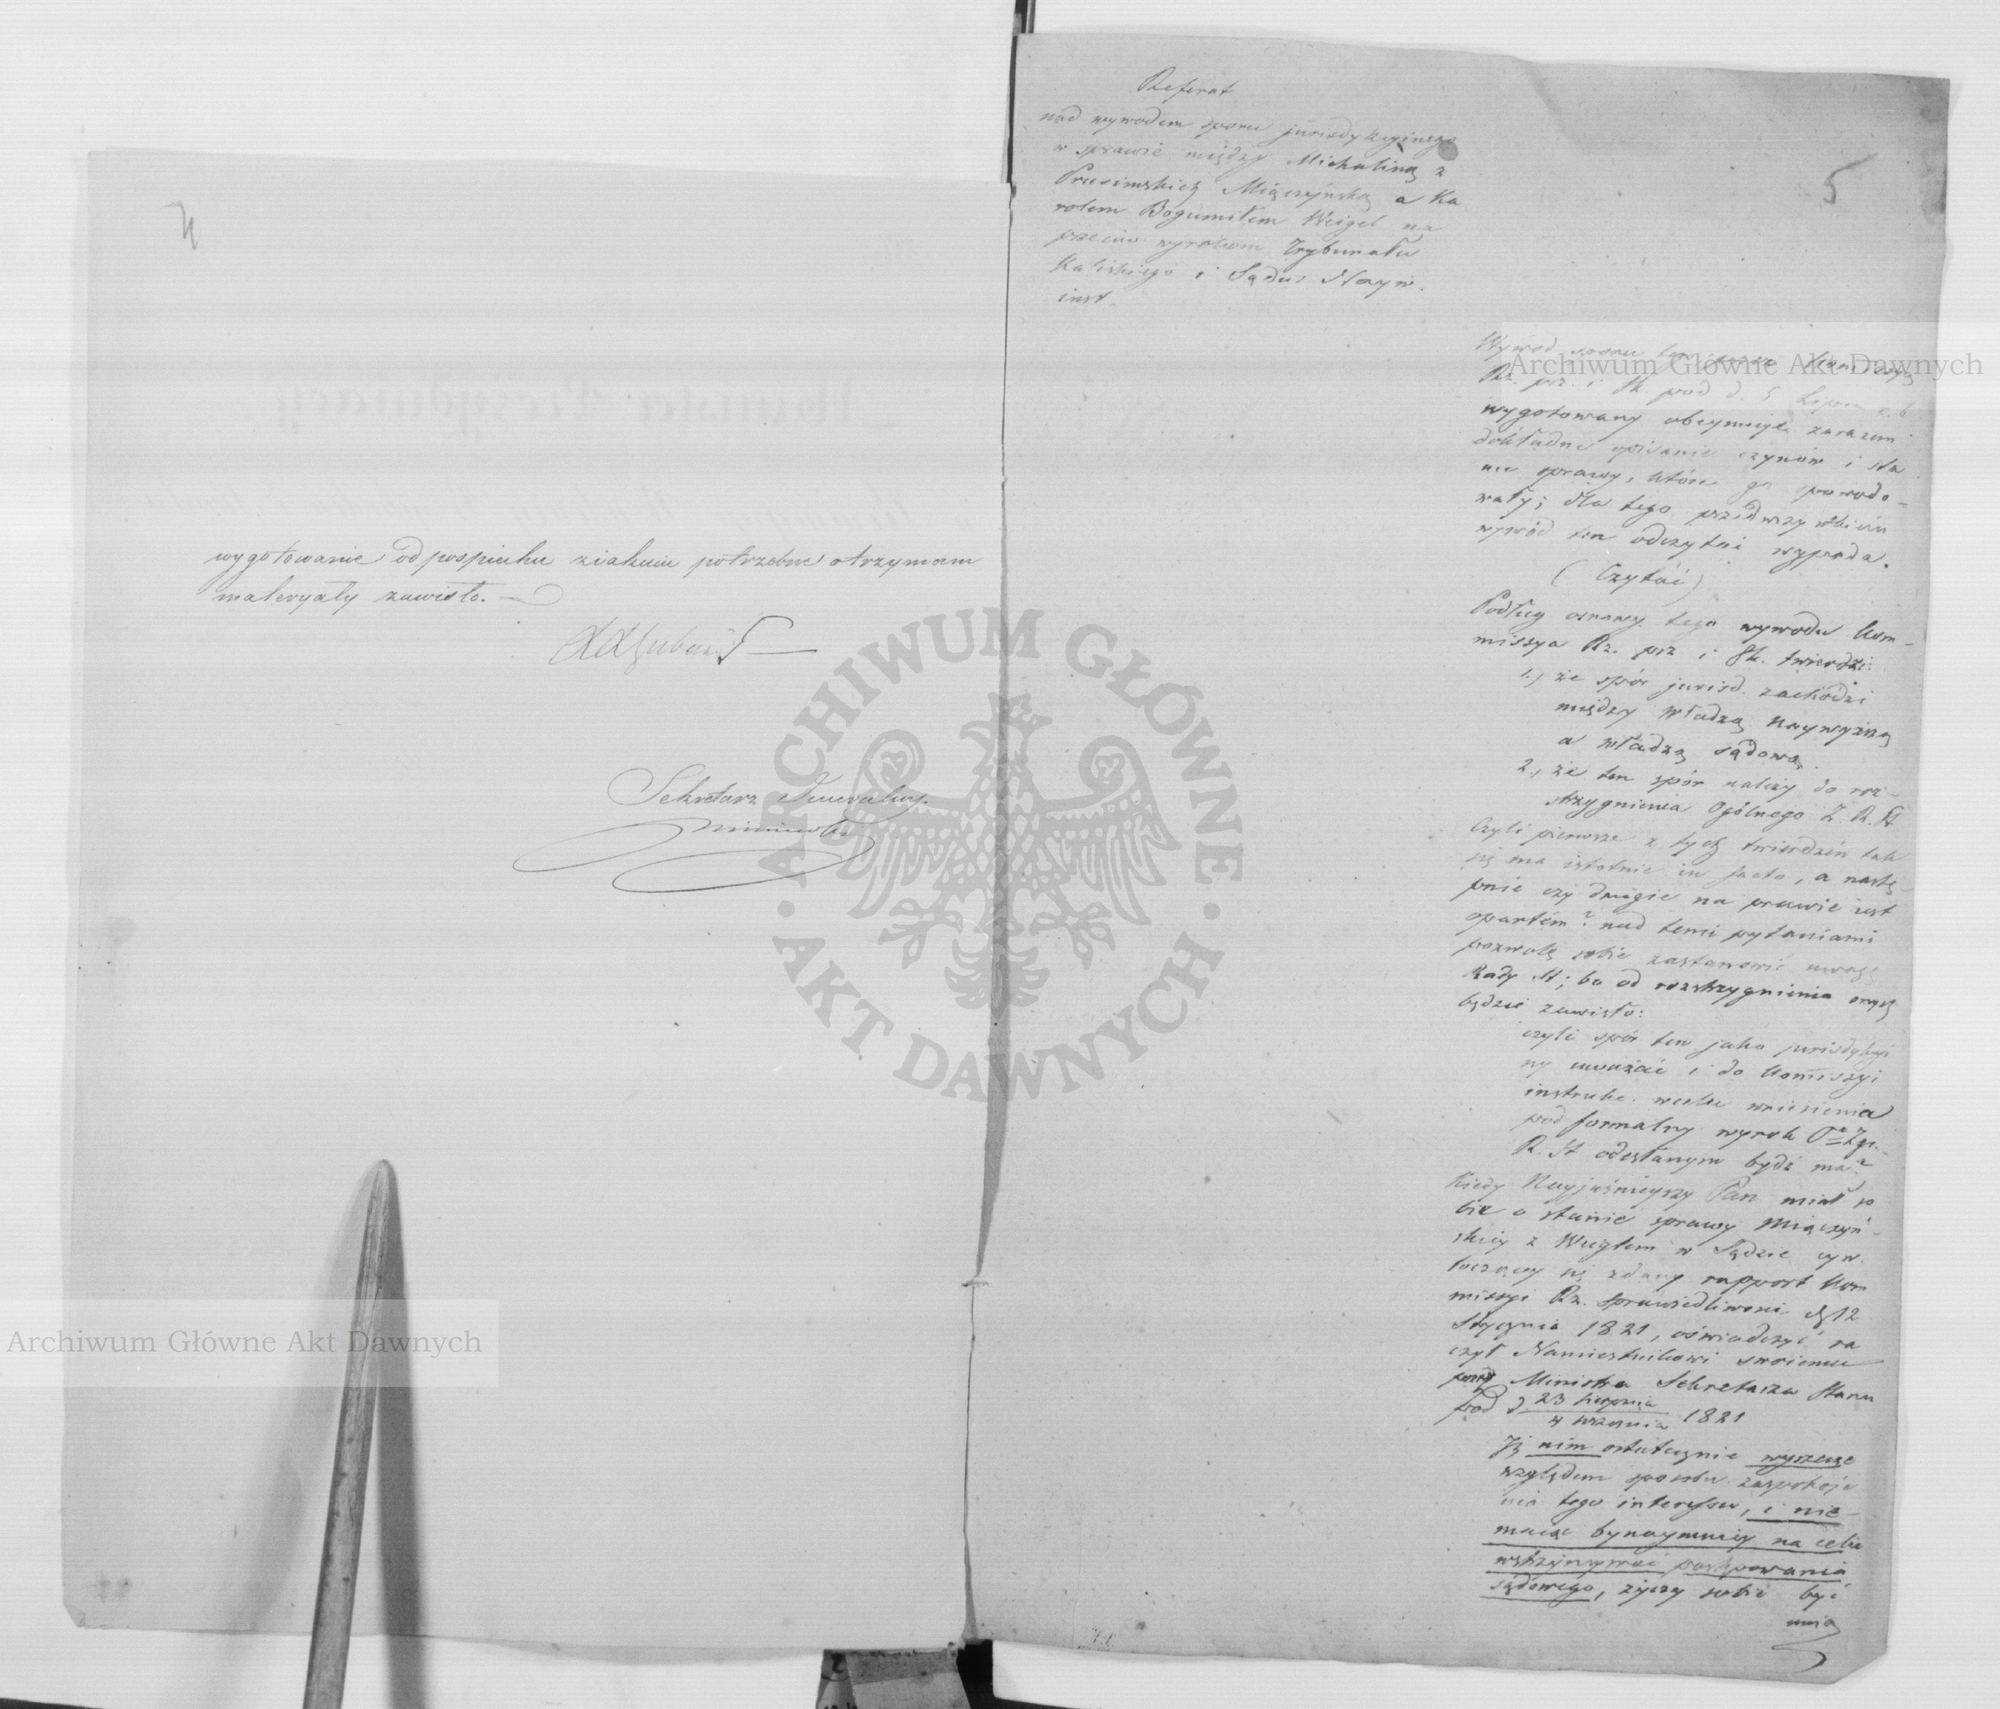 4
wygotowanie od pospiechu ziakim potrzebne otrzymam
materyały zawisło. —
Sekretarz Jeneralny
5
Referat
nad wywodem sporu jurisdykcyjnego
w sprawie między Michaliną z
Prusimskich Miączyńską a Ka
rolem Bogumiłem Weigel na
przeciw wyrokom Trybunału
Kaliskiego i Sądu Nayw.
inst.
Wywód sporu tego przez Kommissyą
Rz. prz. i Sk pod d. 5 Lipca r. b
wygotowany obeymuje zarazem
dokładne opisanie czynów i sta
nu sprawy, które go spowodo-
wały; dla tego przedewszystkiém
wywód ten odczytać wypada.
(Czytać)
Podług osnowy tego wywodu Kom-
missya Rz. prz i Sk. twierdzi:
1., że spór jurisd. zachodzi
między władzą Naywyższą
a władzą sądową.
2., że ten spór należy do roz-
strzygnienia Ogólnego Z. R. St
Czyli pierwsze z tych twierdzeń tak
się ma istotnie in facto, a nastę-
pnie czy drugie na prawie jest
opartém? nad temi pytaniami
pozwolę sobie zastanowić uwagę
Rady St; bo od rozstrzygnienia onych
będzie zawisło:
czyli spór ten jako jurisdykcyi
ny uważać i do Komissyi
instrukc. wcelu wniesienia
pod formalny wyrok Ogo Zgr.
R. St odesłanym bydź ma?
Kiedy Nayjaśnieyszy Pan miał so
bie o stanie sprawy Miączyń-
skiey z Weiglem w Sądzie cyw.
toczącey się zdany rapport Kom
missyi Rz. Sprawiedliwości d. 12
Stycznia 1821, oświadczyć ra
czył Namiestnikowi swoiemu
przez Ministra Sekretarza Stanu
pod d. 23 sierpnia
4 września 1821
Iż nim ostatecznie wyrzecze
względem sposobu zaspokoje
nia tego interessu, i nie-
maiąc bynaymniey na celu
wstrzymywać postępowania
sądowego, życzy sobie być